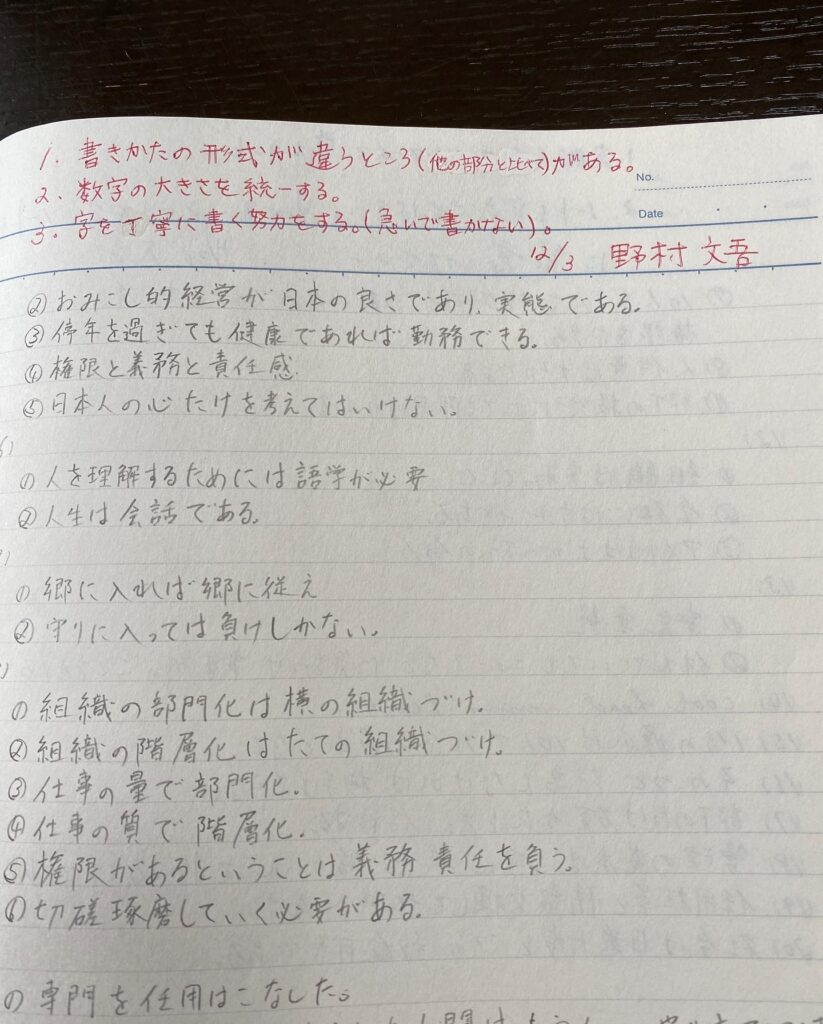 1. 書きかたの形式が違うところ(他の部分と比べて)がある。
2. 数字の大きさを統一する。
No.
Date
3. 字を丁寧に書く努力をする。(急いで書かない)。
12/3 野村文吾
② おみこし的経営が日本の良さであり、実態である。
③ 停年を過ぎても健康であれば勤務できる。
④ 権限と義務と責任感
⑤ 日本人の心だけを考えてはいけない。
① 人を理解するためには語学が必要
② 人生は会話である。
① 郷に入れば郷に従え
② 守りに入っては負けしかない。
① 組織の部門化は横の組織づけ。
② 組織の階層化はたての組織づけ。
③ 仕事の量で部門化.
④ 仕事の質で階層化.
⑤ 権限があるということは義務 責任を負う。
⑥ 切磋琢磨していく必要がある。
① 専門を任用はこなした。